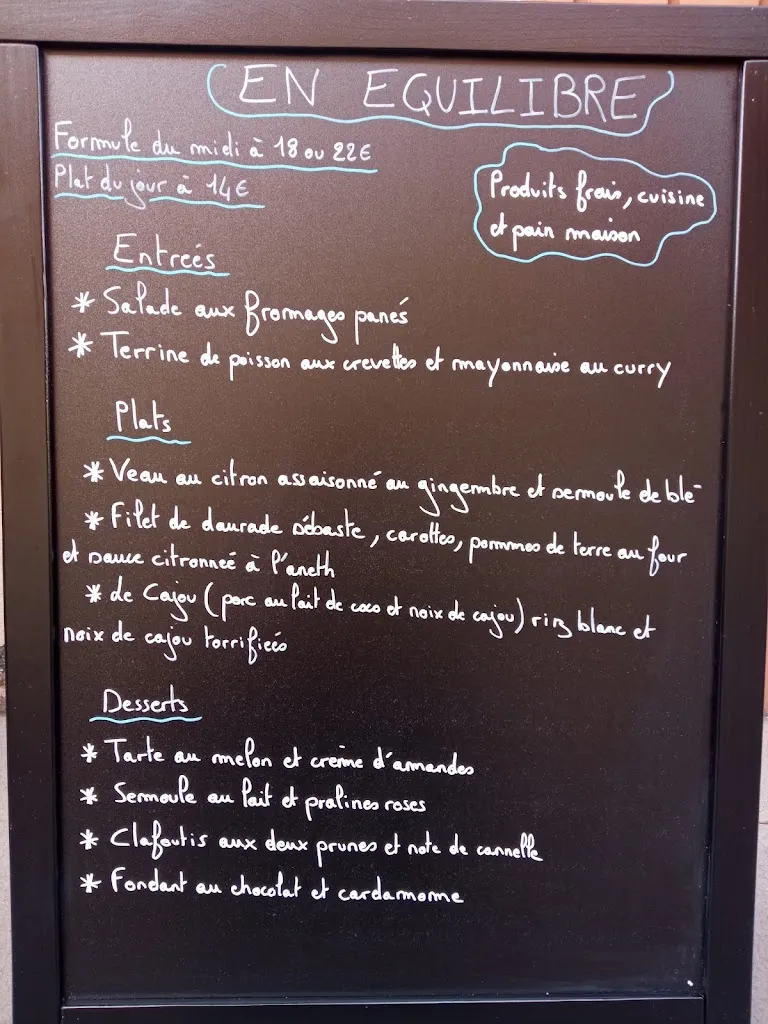 EN EQUILIBRE
Formule du midi à 18 ou 22€
Plat du jour à 14€
Produits frais, cuisine
et pain maison
Entreés
* Salade aux fromages panés
* Terrine de poisson aux crevettes et mayonnaise au curry
Plats
* Veau au citron assaisonné au gingembre et semoule de blé
* Filet de daurade sébaste, carottes, pommes de terre au four
et sauce citronneé à l'aneth
* de Cajou (porc au lait de coco et noix de cajou) riz blanc et
noix de cajou torrifieés
Desserts
* Tarte au melon et crème d'amandes
* Semoule au lait et pralines roses
* Clafoutis aux deux prunes et note de cannelle
* Fondant au chocolat et cardamome